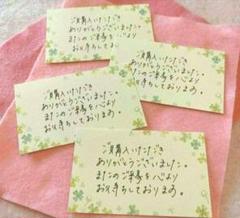 ご購入いただき
ありがとうございました。
またのご来店を心より
お待ちしております。
ご購入いただき
ありがとうございました。
またのご来店を心より
お待ちしております。
ご購入いただき
ありがとうございました。
またのご来店を心より
お待ちしております。
ご購入いただき
ありがとうございました。
またのご来店を心より
お待ちしております。